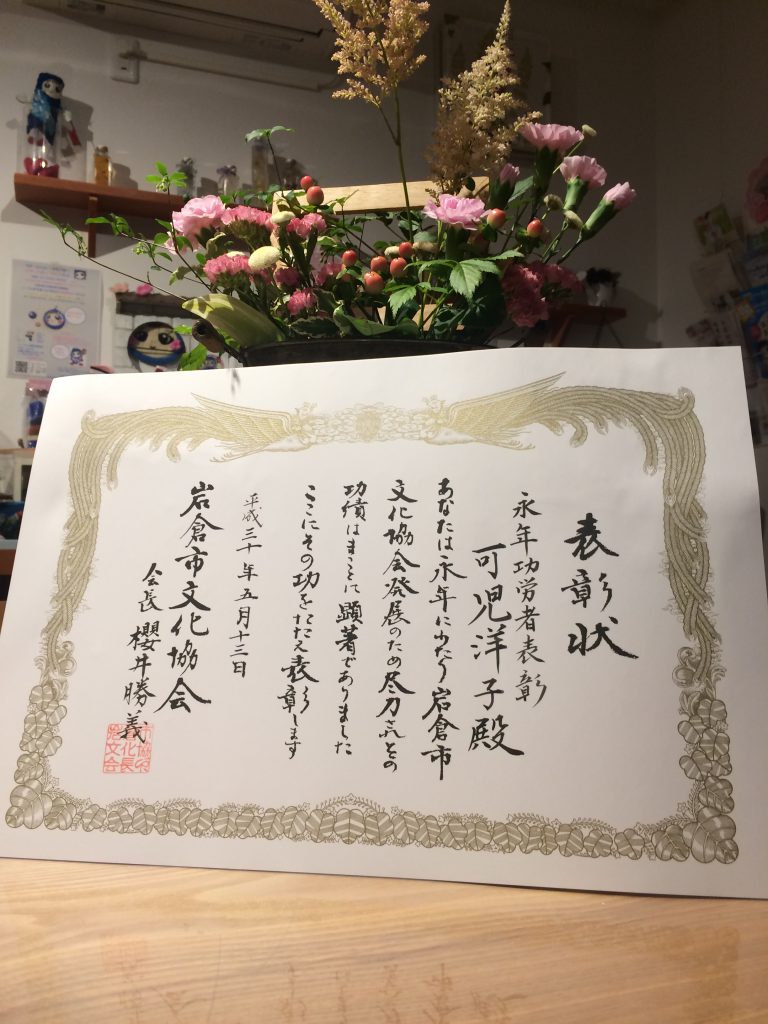 表彰状
永年功労者表彰
可児洋子殿
あなたは永年にわたり岩倉市
文化協会発展のため尽力されその
功績はまことに顕著でありました
ここにその功をたたえ表彰します
平成三十年五月十三日
岩倉市文化協会
会長 櫻井勝義